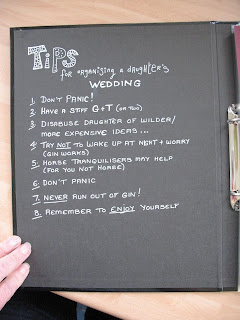 TIPS
for organising a daughter's
WEDDING
1. DON'T PANIC!
2. HAVE A STIFF G+T (OR TWO)
3. DISABUSE DAUGHTER OF WILDER/
MORE EXPENSIVE IDEAS...
4. TRY NOT TO WAKE UP AT NIGHT + WORRY
(GIN WORKS)
5. HORSE TRANQUILISERS MAY HELP
(FOR YOU NOT HORSE)
6. DON'T PANIC
7. NEVER RUN OUT OF GIN!
8. REMEMBER TO ENJOY YOURSELF